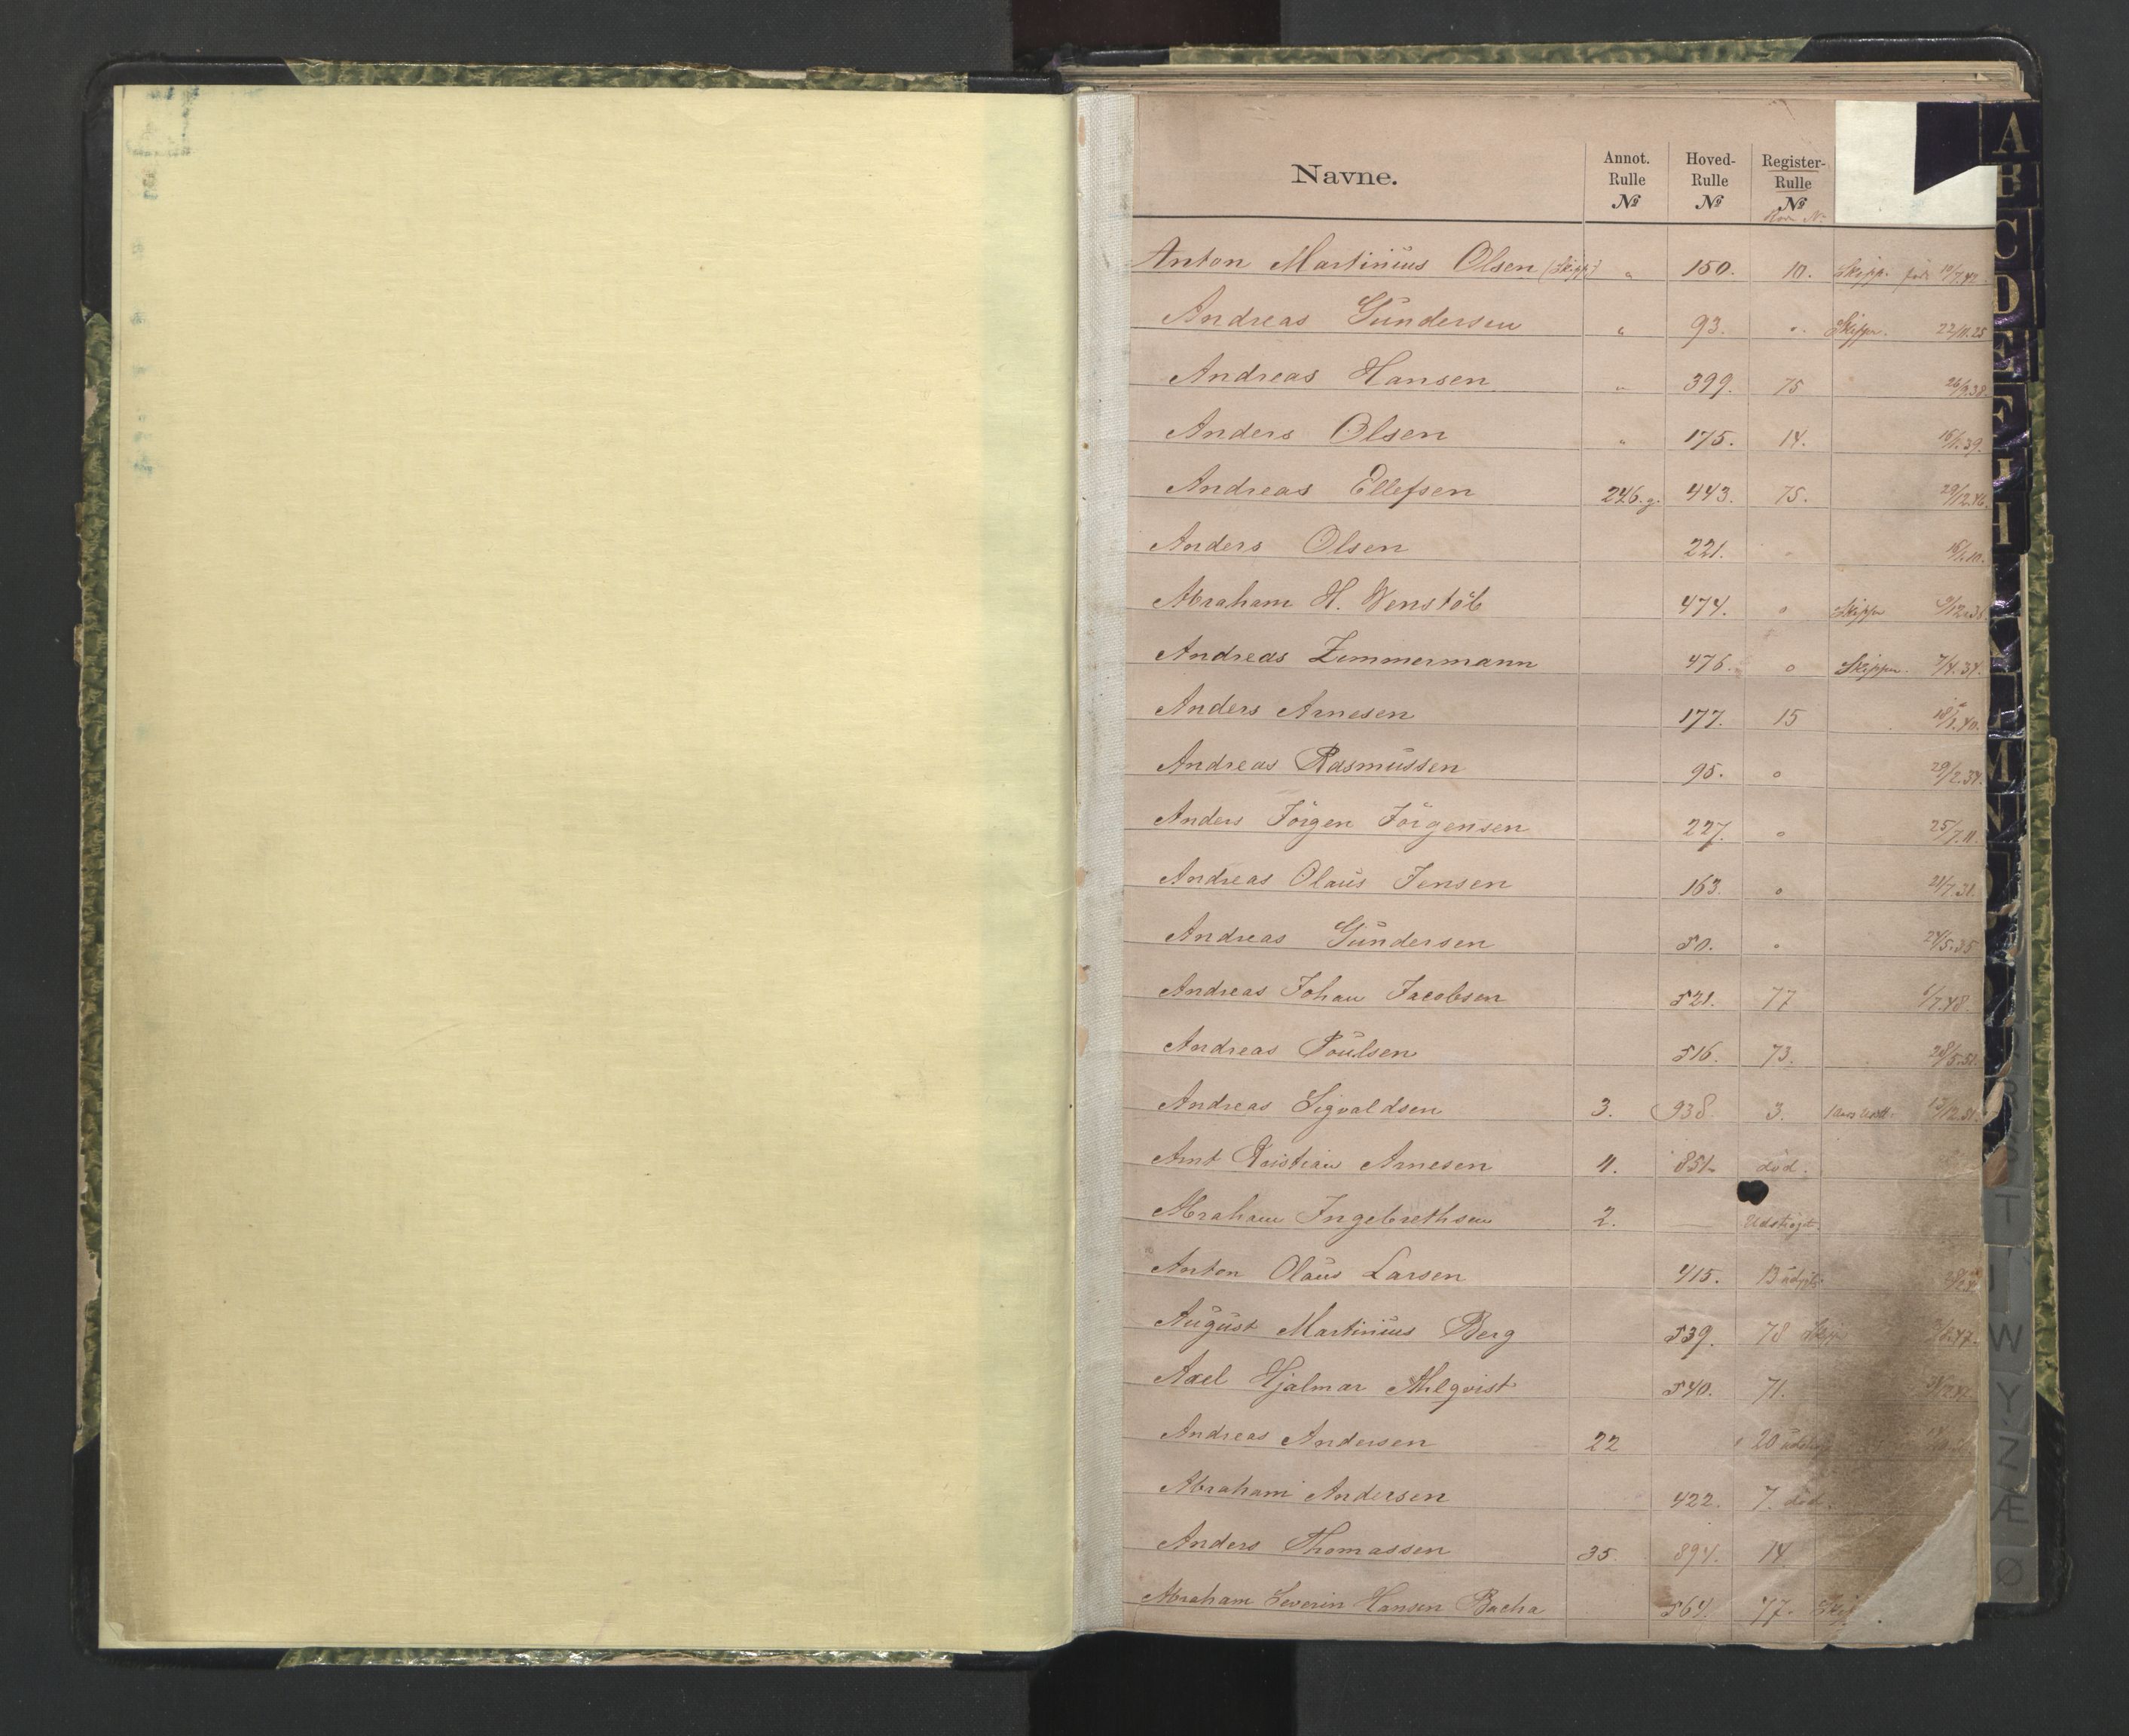 Navne. Annot. Rulle № Hoved- Rulle № Register- Rulle №
Anton Martinius Olsen (Skipp.) " 150. 10. Skipp. født 10/7.42.
Andreas Gundersen " 93. " Skipper. 22/11.25
Andreas Hansen " 399. 75 26/9.38.
Anders Olsen " 175. 14. 15/1.39.
Andreas Ellefsen 246.g. 443. 75. 29/12.46.
Anders Olsen 221. " 15/1.10.
Abraham H. Wenstöb 474. o Skipper 9/12.36
Andreas Zimmermann 476. o Skipper. 7/4.34.
Anders Arnesen 177. 15 18/1.40.
Andreas Rasmussen 95. o 29/2.34.
Anders Jörgen Jörgensen 227. o 25/7.11.
Andreas Olaus Jensen 163. o 21/7.31.
Andreas Gundersen 50. o 24/5.35
Andreas Johan Jacobsen 521. 77 1/7.48.
Andreas Poulsen 516. 73. 28/5.51.
Andreas Sigvaldsen 3. 938. 3. 13/12.51.
Arnt Kristian Arnesen 4. 851. död.
Abraham Ingebrethsen 2. — Udstrøget.
Anton Olaus Larsen 415. 13
August Martinius Berg 539. 78 Skip
Axel Hjalmar Ahlqvist 540. 71.
Andreas Andersen 22 20
Abraham Andersen 422. 7. död.
Anders Thomassen 35. 894. 14
Abraham Severin Hansen Bacha 564. 77.
A
B
C
D
E
F
H
K
M
N
T
W
Y
Z
Æ
Ø